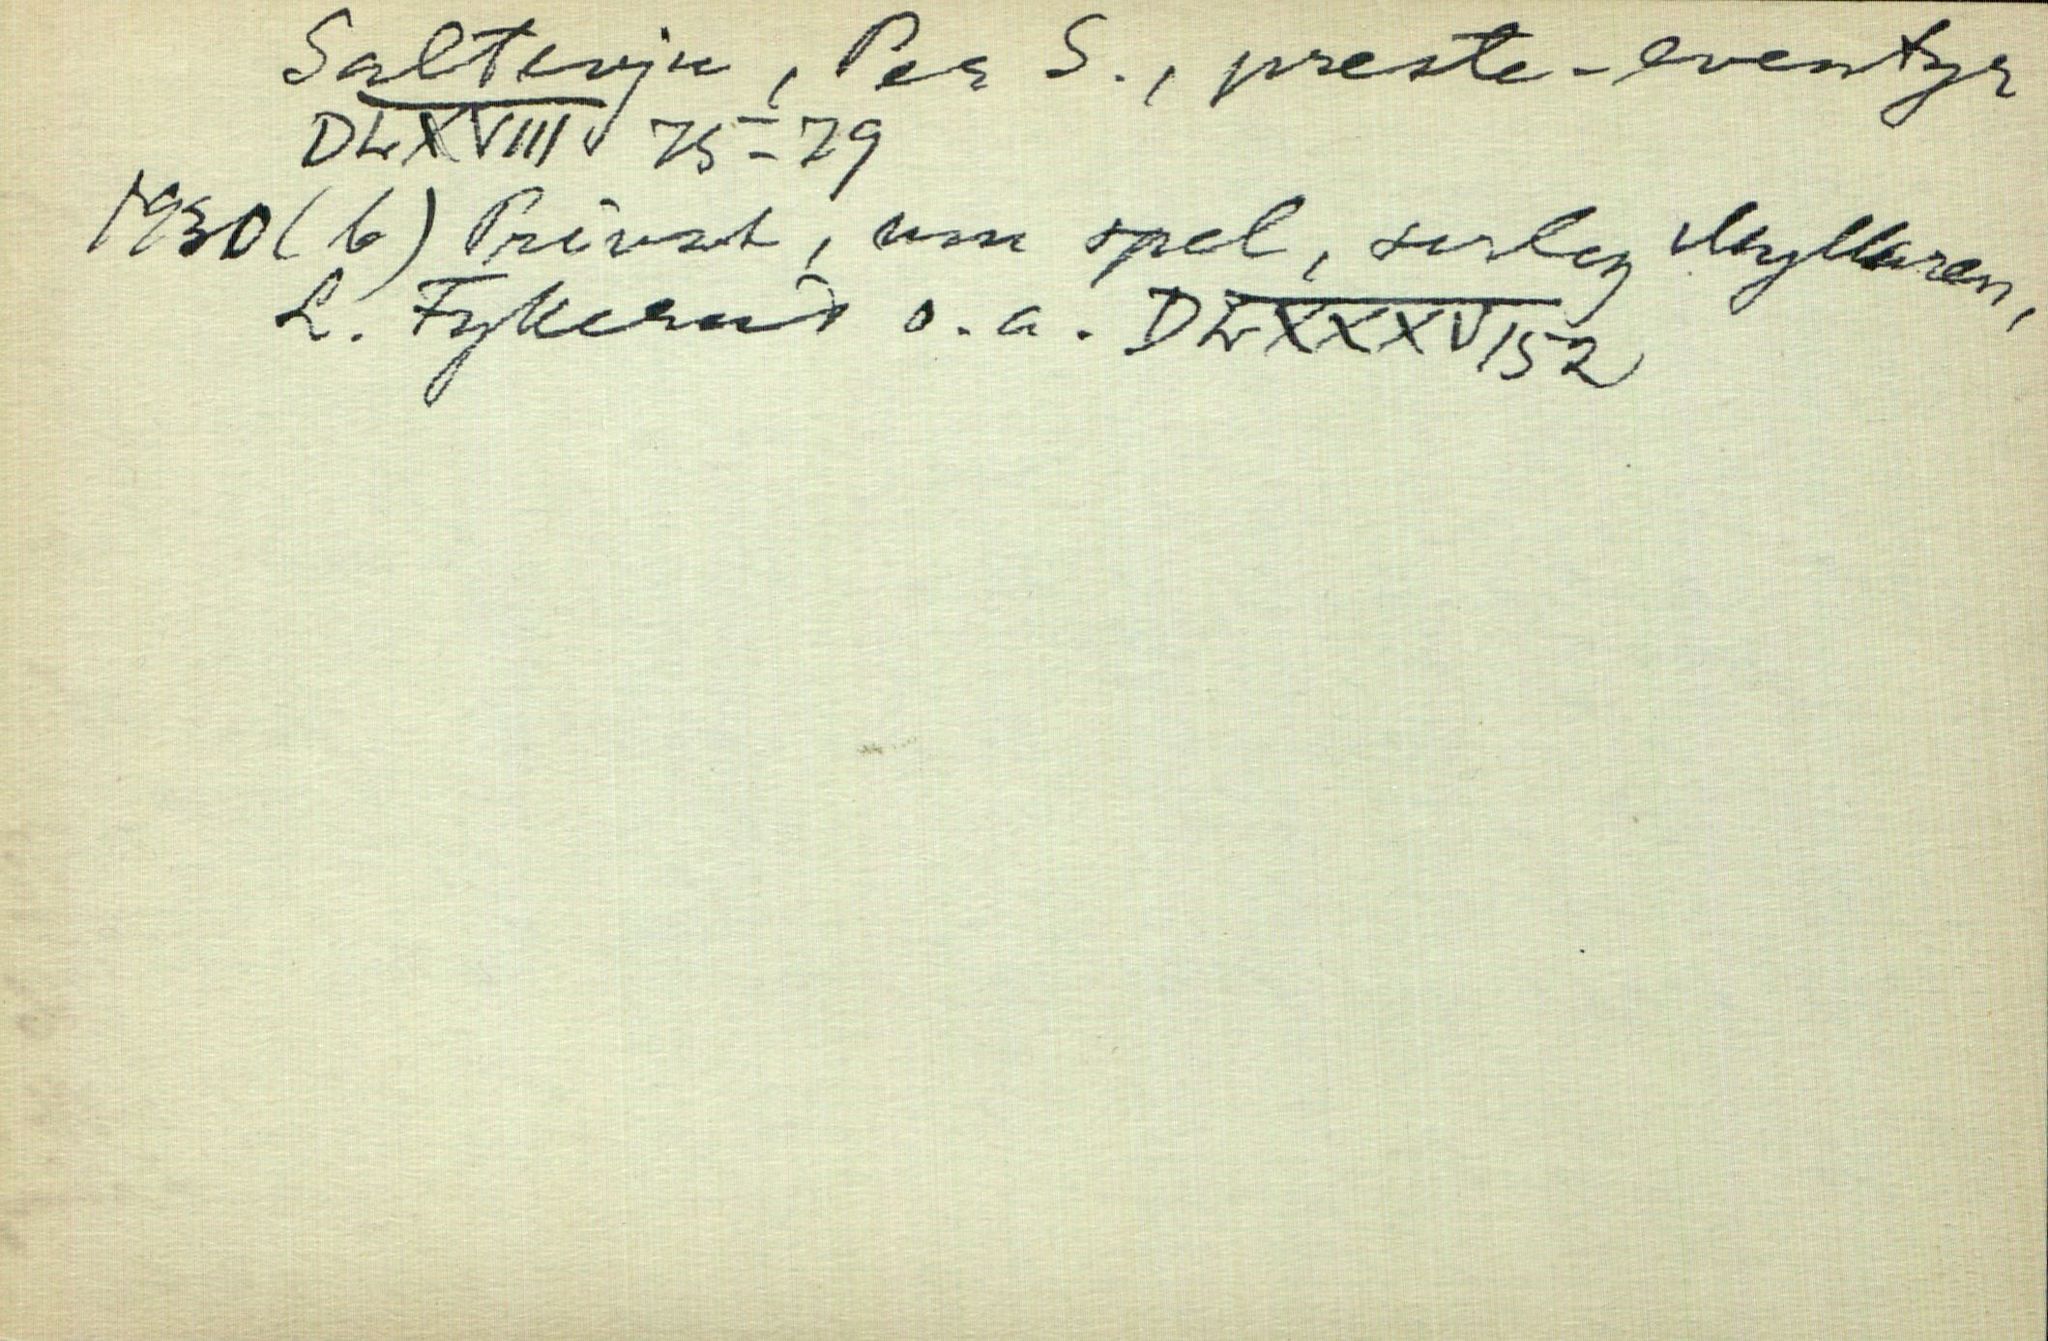 Saltevju, Per S., preste-eventyr
DLXVIII 75-79
1930 (b) Privat, um spel, serleg Myllaren,
L. Fykerud o.a. DLXXXV 152